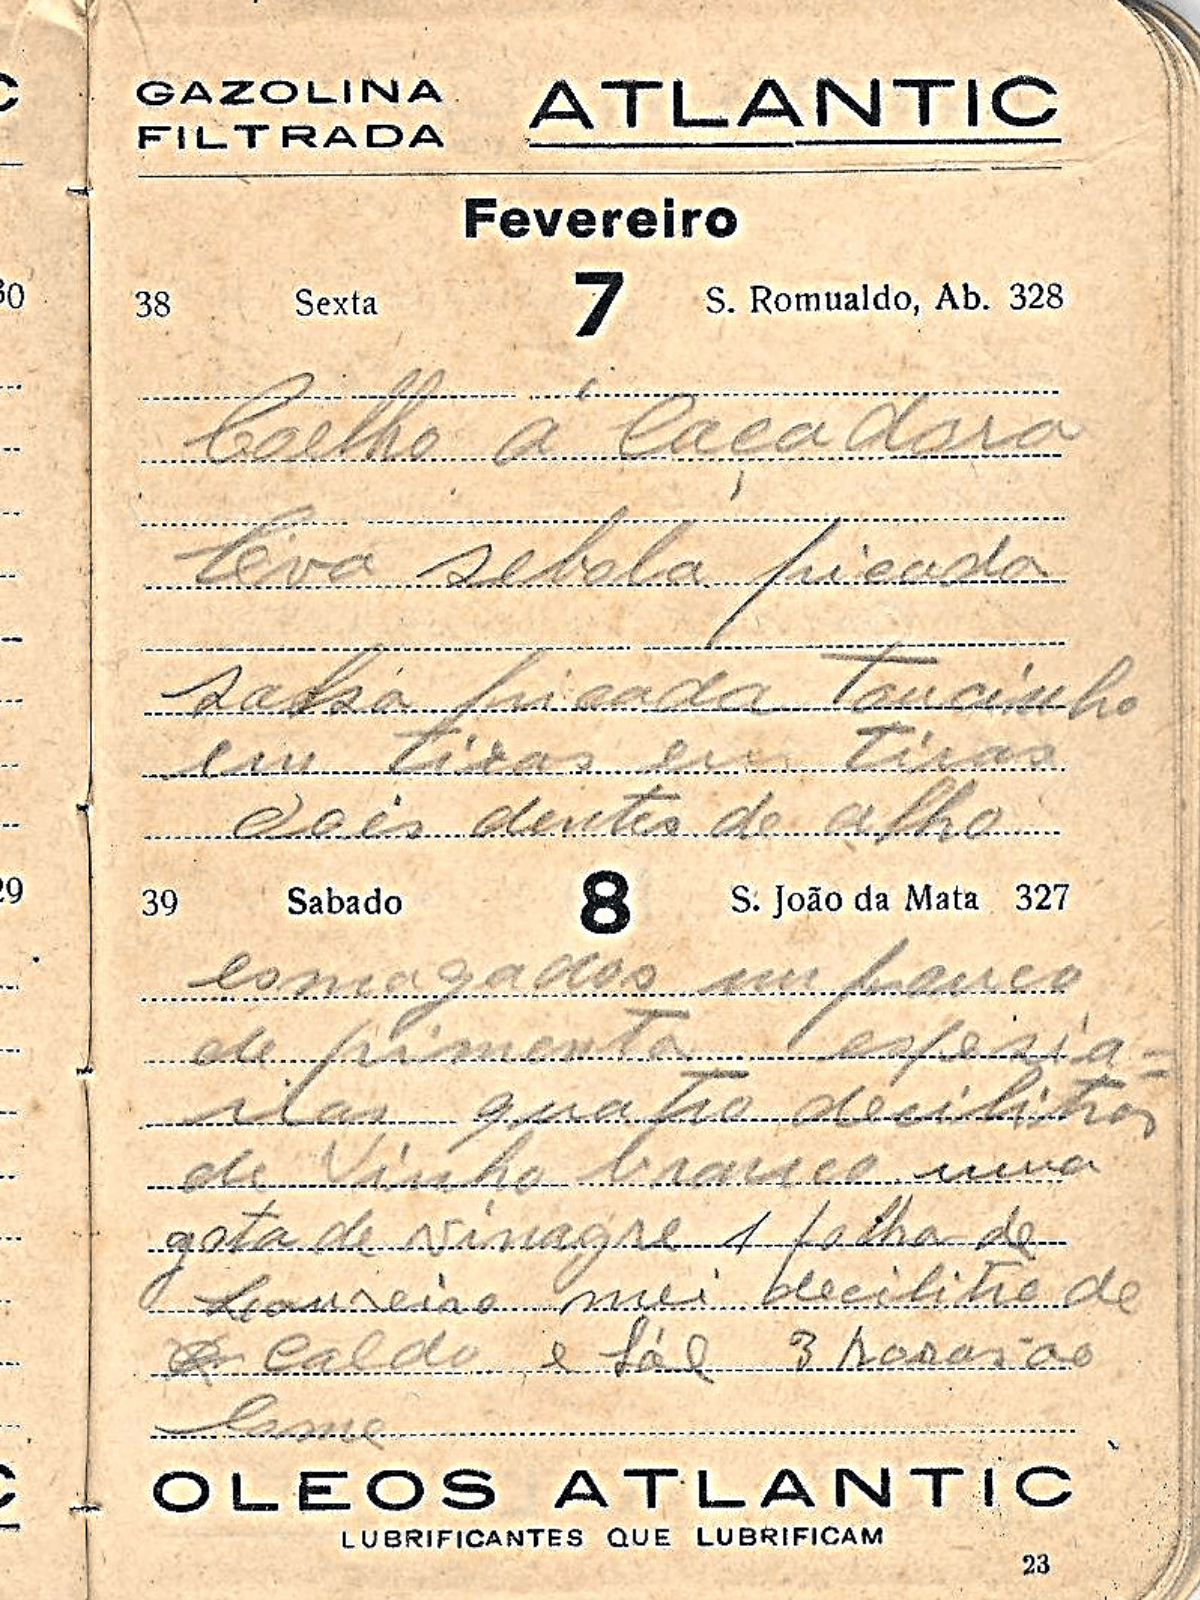 GAZOLINA
FILTRADA
ATLANTIC
Fevereiro
38 Sexta 7 S. Romualdo, Ab. 328
Coelho á Caçadora
Leva sebola picada
salsa picada Toucinho
em tiras em tiras
dois dentes de alho
39 Sabado 8 S. João da Mata 327
esmagados um pouco
de pimenta espesia=
rias quatro decilitros
de Vinho branco uma
gota de vinagre 1 folha de
Loureiro mei decilitro de
Caldo e Sál 3 horas ao
lume
OLEOS ATLANTIC
LUBRIFICANTES QUE LUBRIFICAM
23
C
30
29
C